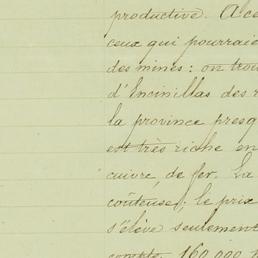 productive. A ce
ceux qui pourraie
des mines: on trou
d'Encinillas des r
la province presq
est très riche en
cuivre, de fer. La
coûteuse; le prix
s'élève seulement
compte 160,000 m